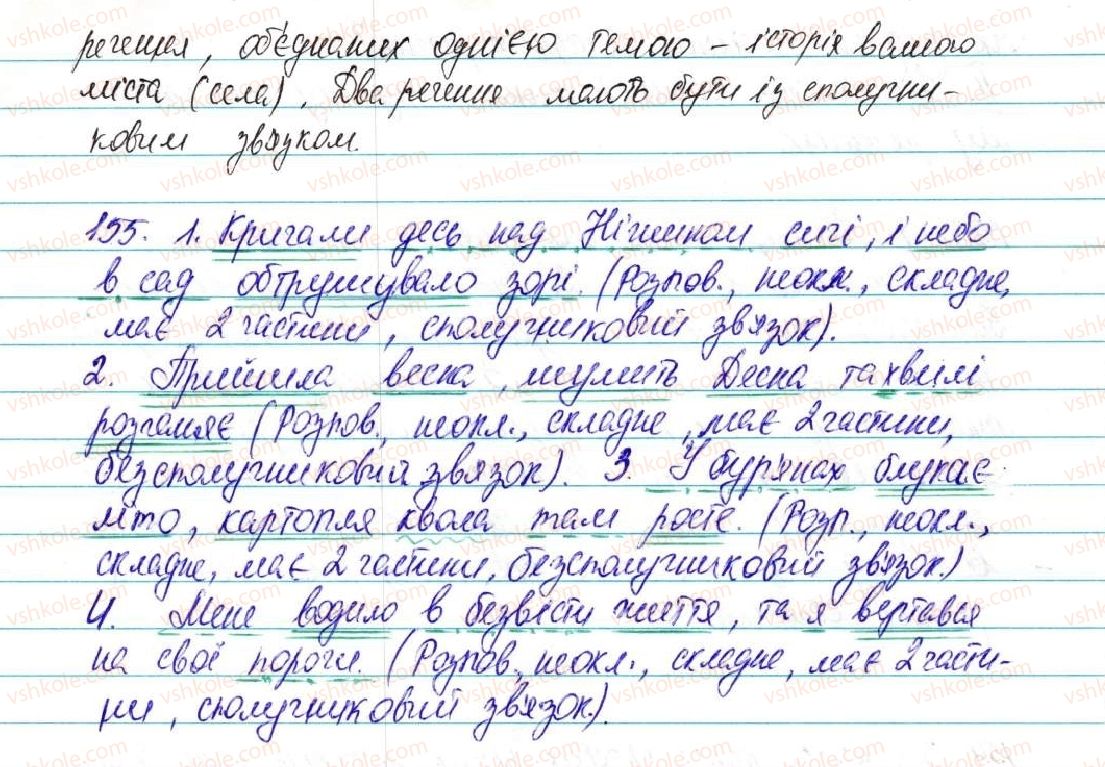 речення, об'єднаних однією темою – історія вашого
міста (села). Два речення мають бути із сполучни-
ковим зв'язком.
155. 1. Кричали десь над Ніжином сичі, і небо
в сад обтрушувало зорі. (Розпов., неокл., складне,
має 2 частини, сполучниковий зв'язок).
2. Прийшла весна, шумить Десна та хвилі
розганяє (Розпов., неокл., складне, має 2 частини,
безсполучниковий зв'язок). 3. У бур'янах блукає
літо, картопля квола там росте. (Розп., неокл.,
складне, має 2 частини, безсполучниковий зв'язок.)
4. Мене водило в безвісти життя, та я вертався
на свої пороги. (Розпов., неокл., складне, має 2 части-
ни, сполучниковий зв'язок.)